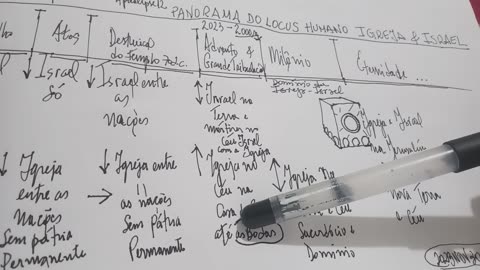 Apocalipse 12
PANORAMA DO LOCUS HUMANO IGREJA & ISRAEL
2023-2000
Atos
Destruição
do Templo 70d.C.
Advento &
Grande Tribulação
Milênio
Eternidade ...
Israel
Só
Israel entre
as
Nações
Israel na
Terra e
no
Céu Israel
com a Igreja
Domínio
Igreja - Israel
Igreja e Israel
na
Nova Terra
e Céu
Igreja
entre as
Nações
Sem pátria
Permanente
Igreja entre
as nações
Sem pátria
Permanente
Igreja no
Céu na
Casa
até as Bodas
Igreja na
e Céu
Sacerdócio e
Domínio